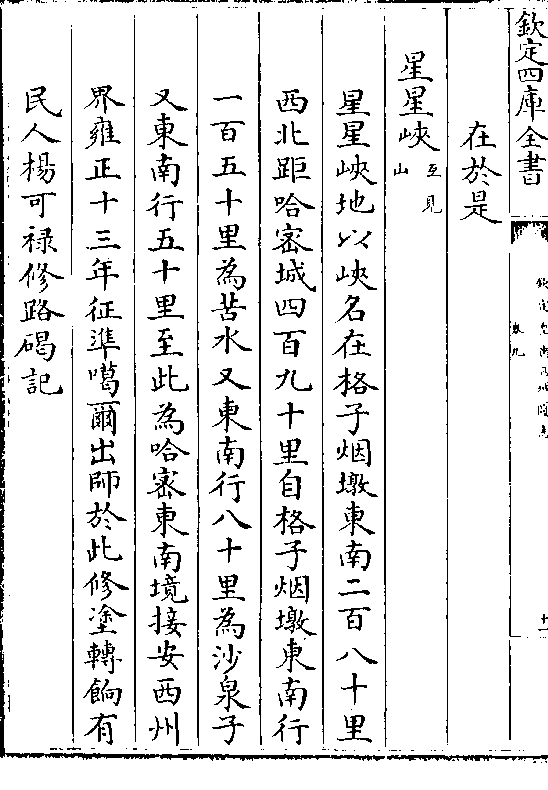 欽定四庫全書
欽定皇輿西域圖志
卷九
十一
在於是
星星峽互見山
星星峽地以峽名在格子烟墩東南二百八十里
西北距哈密城四百九十里自格子烟墩東南行
一百五十里為苦水又東南行八十里為沙泉子
又東南行五十里至此為哈密東南境接安西州
界雍正十三年征準噶爾出師於此修塗轉餉有
民人楊可禄修路碣記